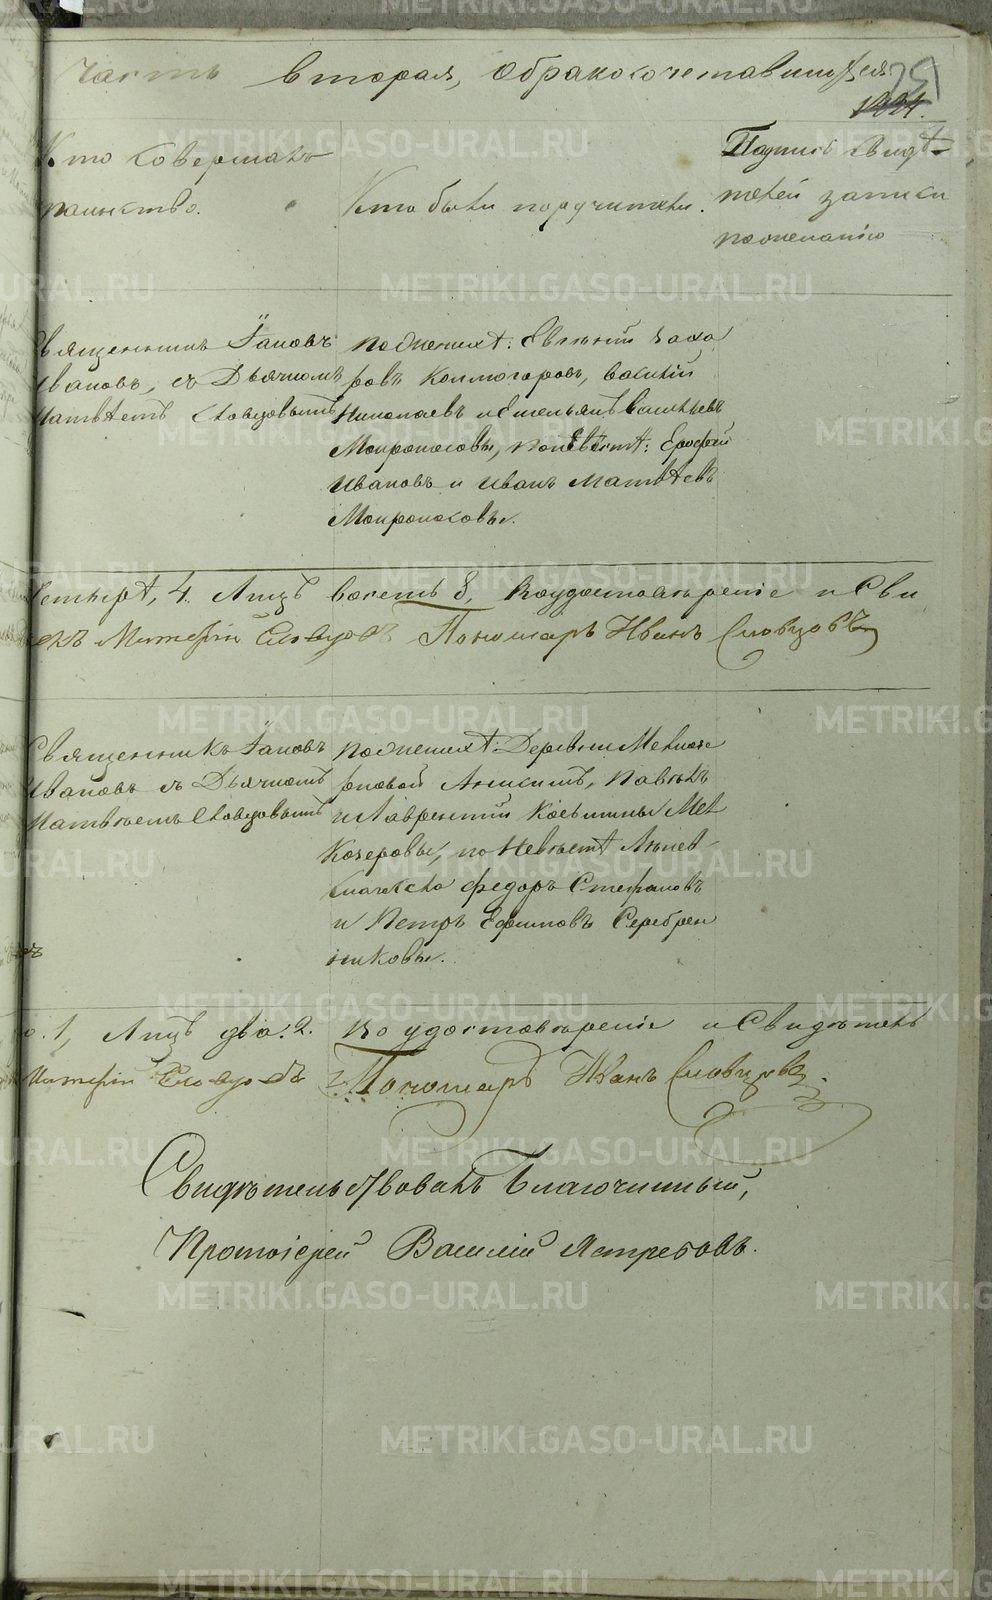 Часть вторая, о бракосочетавшихся
Кто совершалъ
таинство.
Кто были поручители.
Подпись свидѣ-
телей записи
по желанію
Священникъ Іаковъ
Ивановъ, съ Дьячкомъ
Матвѣемъ Словцовымъ
по женихѣ: Евгеній Заха
ровъ Колмогоровъ, Василій
Николаевъ и Емельянъ Васильевъ
Мокроносовы, по невѣстѣ: Ерофей
Ивановъ и Иванъ Матвѣевъ
Мокроносовы.
четыре, 4. Лицъ восемь 8, Въ удостовѣреніе и Сви
Словцовъ Пономарь Иванъ Словцовъ
Священникъ Іаковъ
Ивановъ съ Дьячкомъ
Матвѣемъ Словцовымъ
по женихѣ: Деревни Мелкозе
ровой Анисимъ, Павелъ
и Лаврентій Козьмины Мел
козеровы, по невѣстѣ
Федоръ Стефановъ
и Петръ Ефимовъ Серебрен
никовы.
1, Лицъ два: 2. Въ удостовѣреніе и Свидѣтель
Словцовъ Пономарь Иванъ Словцовъ
Свидѣтельствовалъ Благочинный,
Протоіерей Василій Ястребовъ.
METRIKI.GASO-URAL.RU